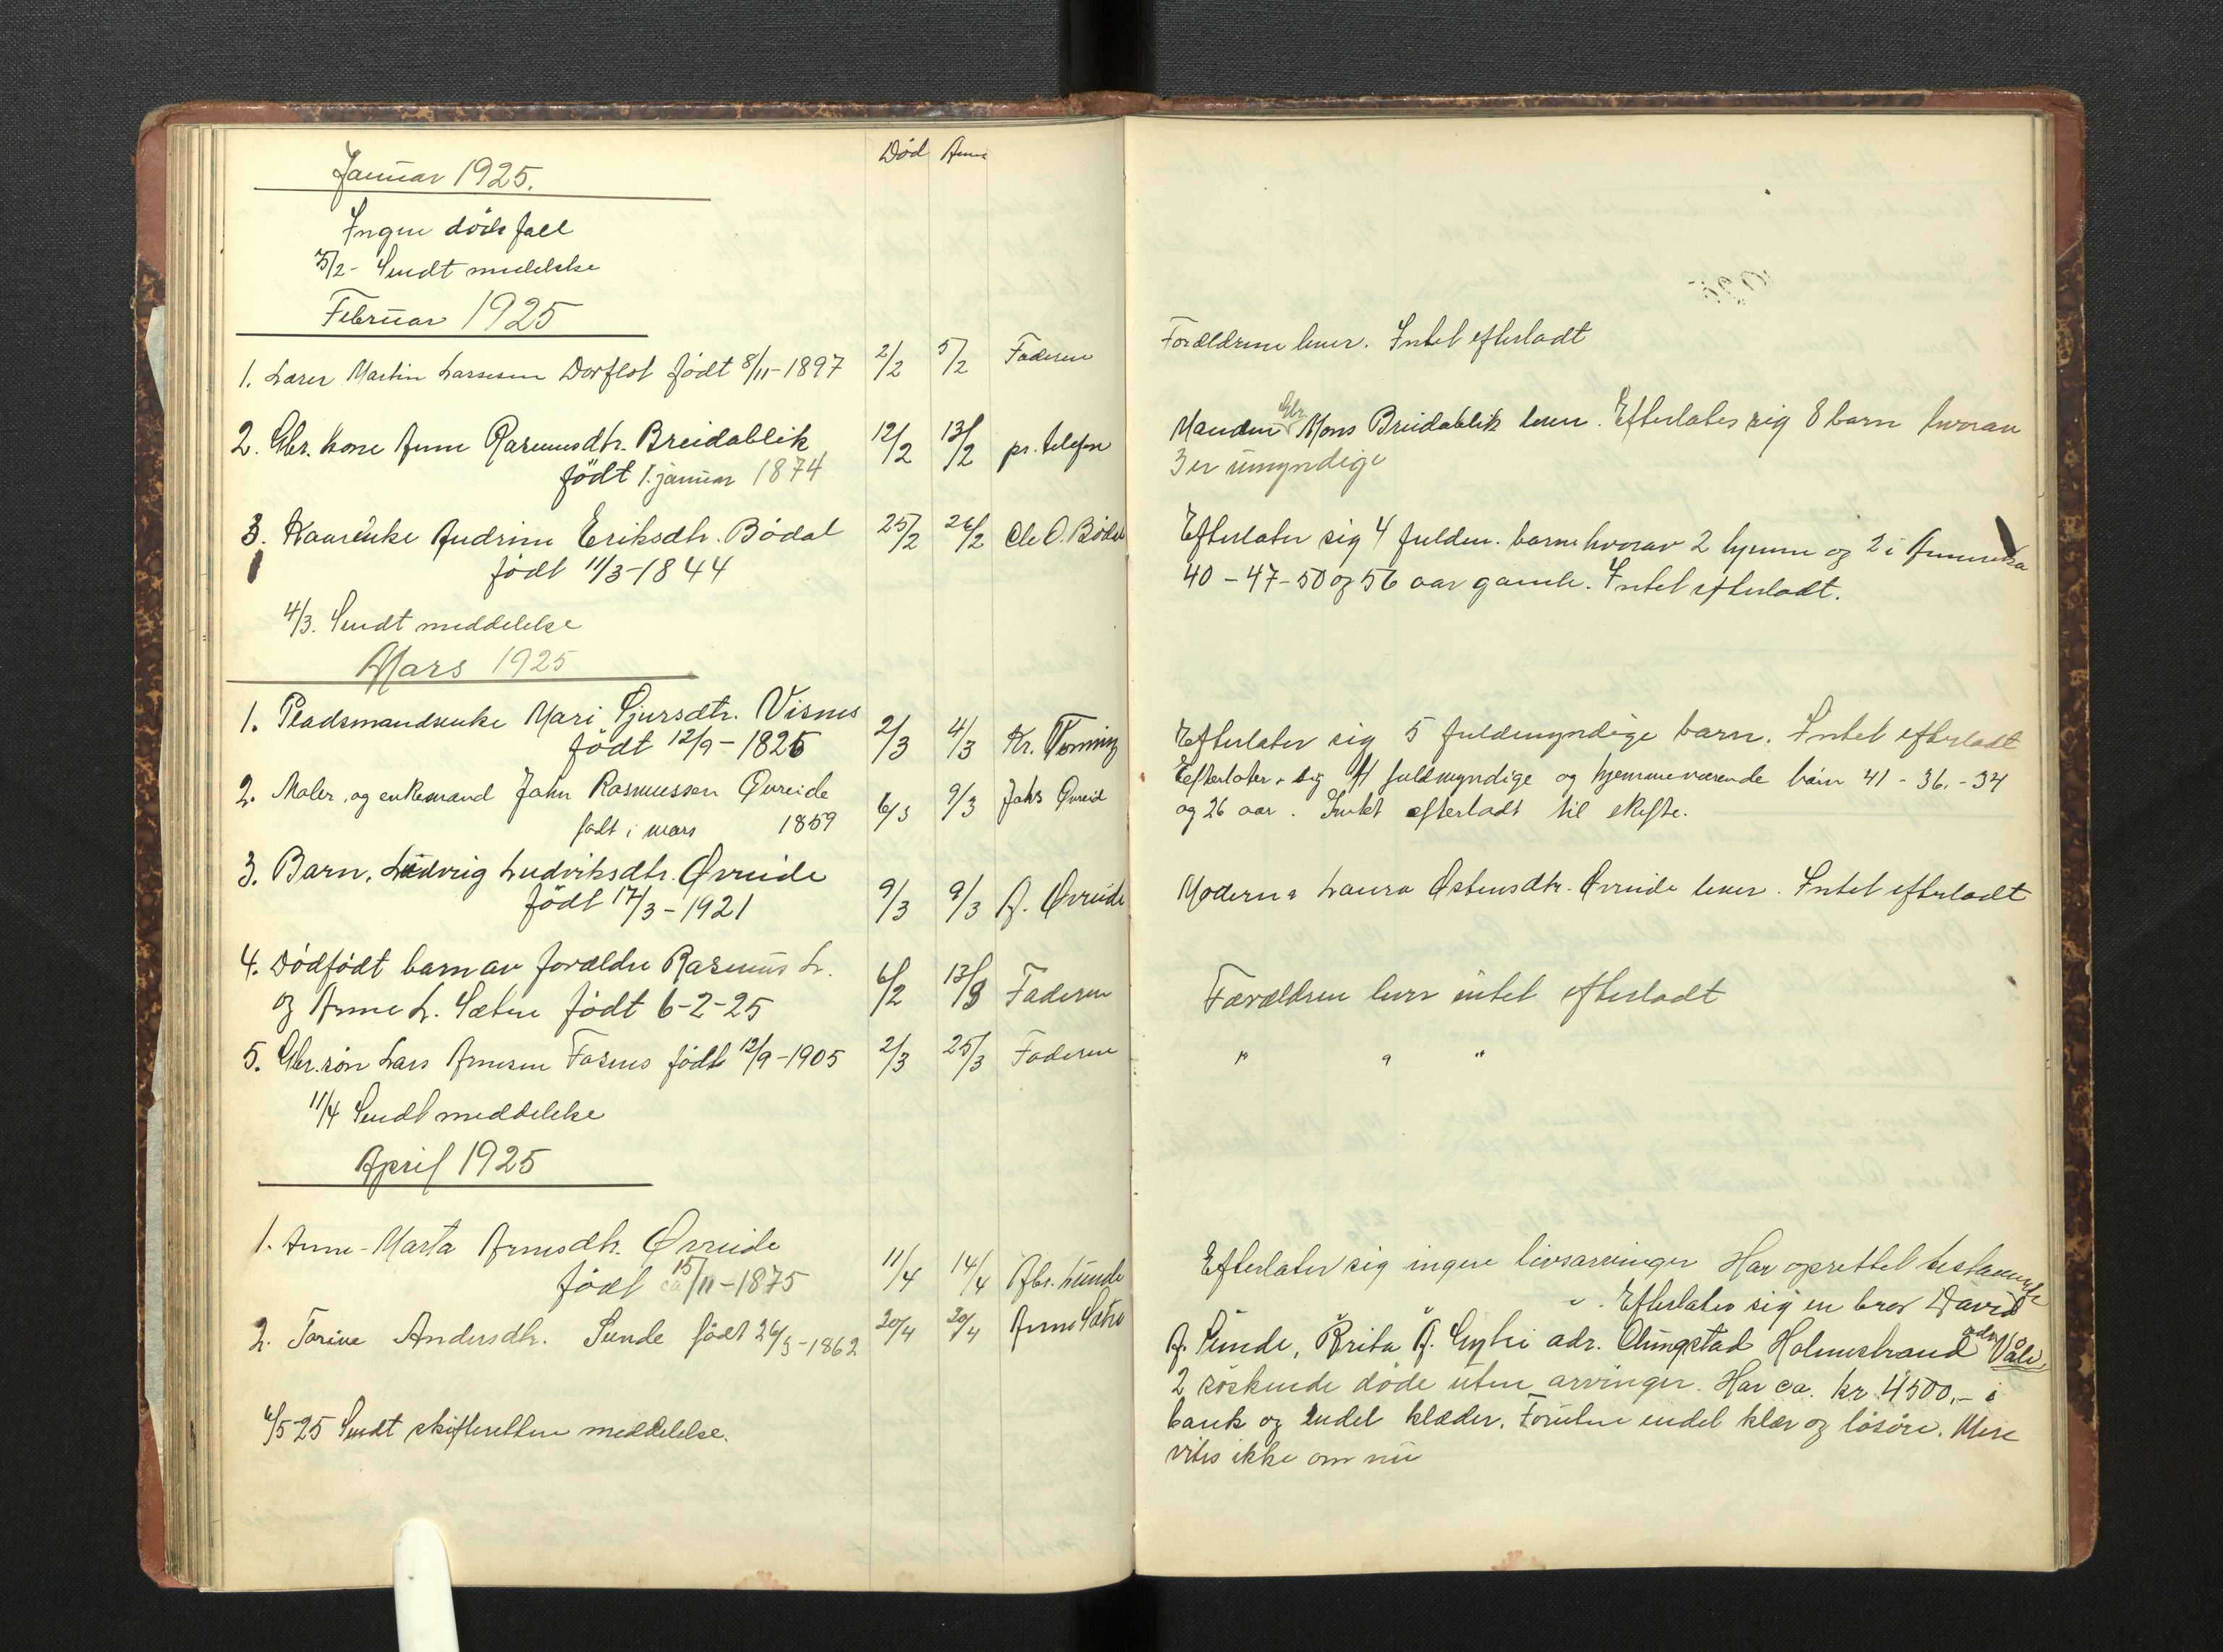 Død Anm
Januar 1925.
Ingen dødsfall
5/2- Sendt meddelelse
Februar 1925
1. Lærer Martin Larssen Dorflot født 8/11-1897 2/2 5/2 Faderen
2. Gbr. kone Anne Rasmusdtr. Breidablik 12/2 13/2 pr. telefon
født 1. januar 1874
3. Kaarenke Andrine Eriksdtr. Bødal 25/2 26/2 Ole O. Bødal
født 11/3-1844
4/3. Sendt meddelelse
Mars 1925
1. Pladsmandsenke Mari Gjursdtr. Visnes 2/3 4/3 Kr. Tenning
født 12/9-1825
2. Maler, og enkemand John Rasmussen Øvreide 6/3 9/3 Johs Øvreid
født i mars 1859
3. Barn, Ludvig Ludviksdtr. Øvreide
født 17/3-1921 9/3 9/3 A. Øvreide
4. Dødfødt barn av forældre Rasmus L. 6/2 13/3 Faderen
og Anne L. Sætre født 6-2-25
5. Gbr. søn Lars Arnesen Fosnes født 12/9-1905 2/3 25/3 Faderen
11/4 Sendt meddelelse
April 1925
1. Anne-Marta Arnesdtr. Øvreide
født ca 15/11-1875 11/4 14/4 Abr. Lunde
2. Torine Andersdtr. Sunde født 26/3-1862 20/4 20/4 Anne Sætre
6/5-25 Sendt skifteretten meddelelse.
Forældrene lever. Intet efterladt
Manden Gbr. Mons Breidablik lever. Efterlates sig 8 barn hvorav
3 er umyndige
Efterlater sig 4 fuldm. barn hvorav 2 hjemme og 2 i Amerika
40-47-50 og 56 aar gamle. Intet efterladt.
Efterlater sig 5 fuldmyndige barn. Intet efterladt
Efterlater sig 4 fuldmyndige og hjemmeværende barn 41-36.-34
og 26 aar. Intet efterladt til skifte.
Moderen Laura Østensdtr. Øvreide lever. Intet efterladt
Forældren lever intet efterladt
" " "
Efterlater sig ingen livsarvinger Har oprettet testamente
Efterlater sig en bror David
A. Sunde, Brita A. adr. Holmestrand adr. Våle,
2 søskende døde uten arvinger. Har ca. kr. 4500,- i
bank og endel klæder. Foruten endel klær og løsøre. Mere
vites ikke om nu